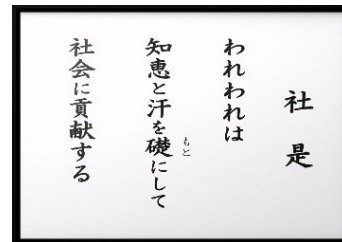 社是
われわれは
知恵と汗を礎にして
もと
社会に貢献する